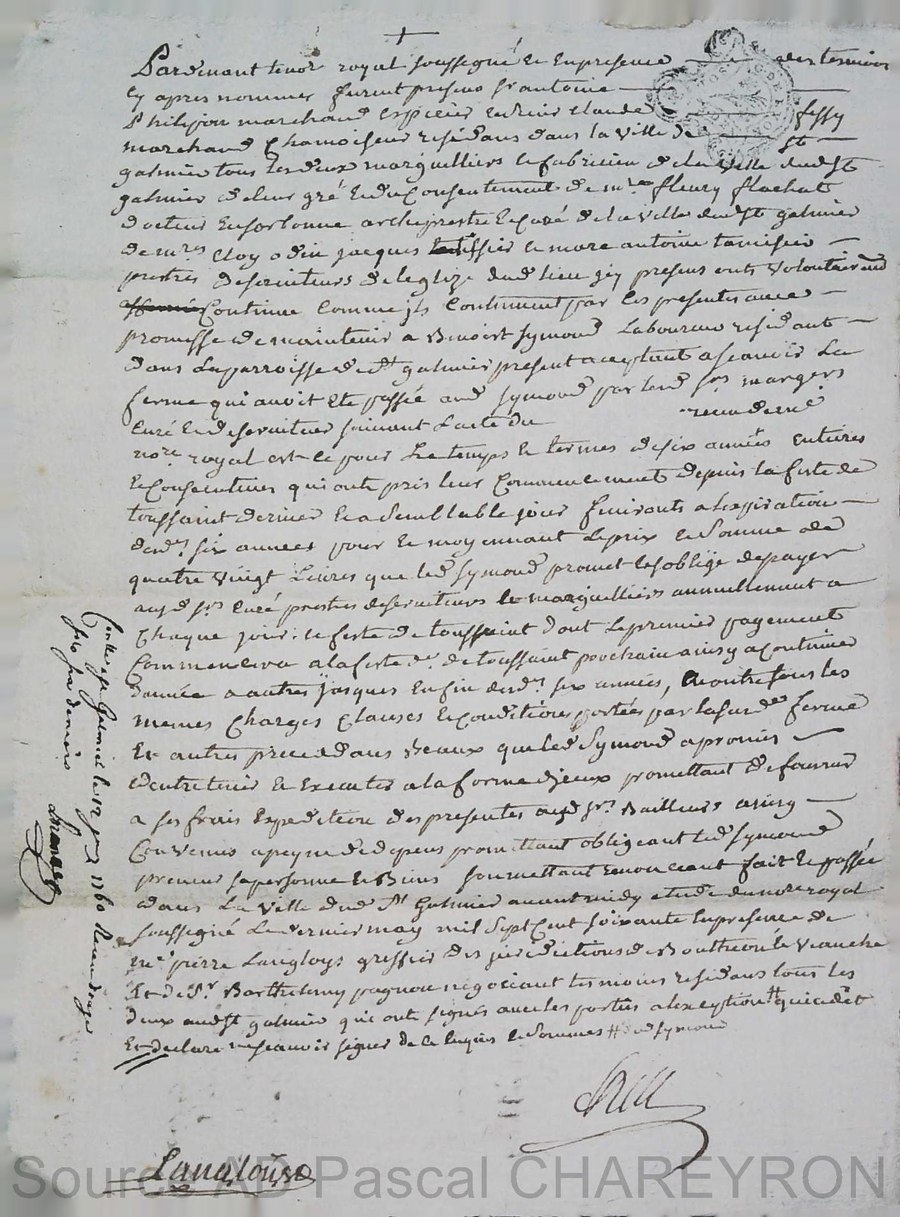 Pardevant le nore royal soussigné et en presence des temoins
cy apres nommes furent presens sr antoine
Philippon marchand espicier et sieur claude fessy
marchand chamoiseur residans dans la ville de St
galmier tous les deux marguilliers et fabricien de la ville dud St
galmier de leur gré et du Consentement de mre fleury flachat
docteur en sorbonne archiprestre et curé de la ville dud St galmier
de mres eloy odin jacques tissier et marc antoine tamisier
prestres deserviteurs de leglize dud lieu jcy presens ont volontairemt
Continué comme jls continuent par ces presentes avec
promesse de maintenir a Benoist symond Laboureur residant
dans la parroisse de St galmier present aceptant a scavoir La
ferme qui avoit ete passée aud symond par lesd srs margers
curé et deserviteurs suivant l'acte du receu de me
nore royal est ce pour Le temps et termes de six années entieres
et consecutives qui ont pris leur Commencement depuis la feste de
toussaint dernier et a semblable jour finiront a lexpiration
desds six années pour et moyennant le prix et somme de
quatre vingt Livres que led symond promet et soblige de payer
auxd srs curé prestres deserviteurs et marguilliers annuellement a
chaque jour et feste de toussaint dont le premier payement
Commencera a la feste de toussaint prochain ainsy a continuer
dannée a autres jusques en fin desds six années, et outre sous les
memes charges clauses et conditions portées par la susde ferme
Et autres precedans Beaux que led symond a promis
dentretenir et executer a la forme djceux promettant de fournir
a ses frais Expedition des presentes auxd srs Bailleurs ainsy
Convenu a peyne de depens promettant obligeant led symond
preneur sa personne et Biens soumettant renonceant fait et passée
dans La ville dud St Galmier avant midy etude du nore royal
soussigné Le dernier may mil sept Cent soixante en presence de
me pierre Langloys greffier des jurisdictions de Bouthéon et veauche
Et de sr Barthelemy pagnon negociant temoins residans tous les
deux aud St galmier qui ont signés avec les parties a lexception
Et declaré ne scavoir signer de ce enquis et sommés # dud symond
Langlois
Controllé a St Galmier le 12 1760 Receu douze
sols six deniers